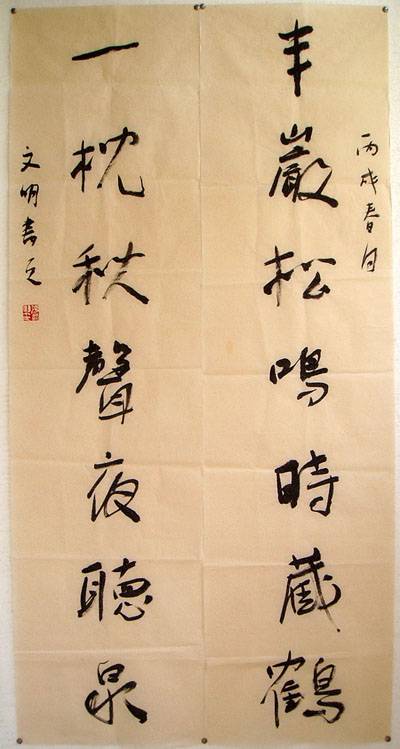 丙戌春月
半巖松鳴時藏鶴
一枕秋聲夜聽泉
文明書之